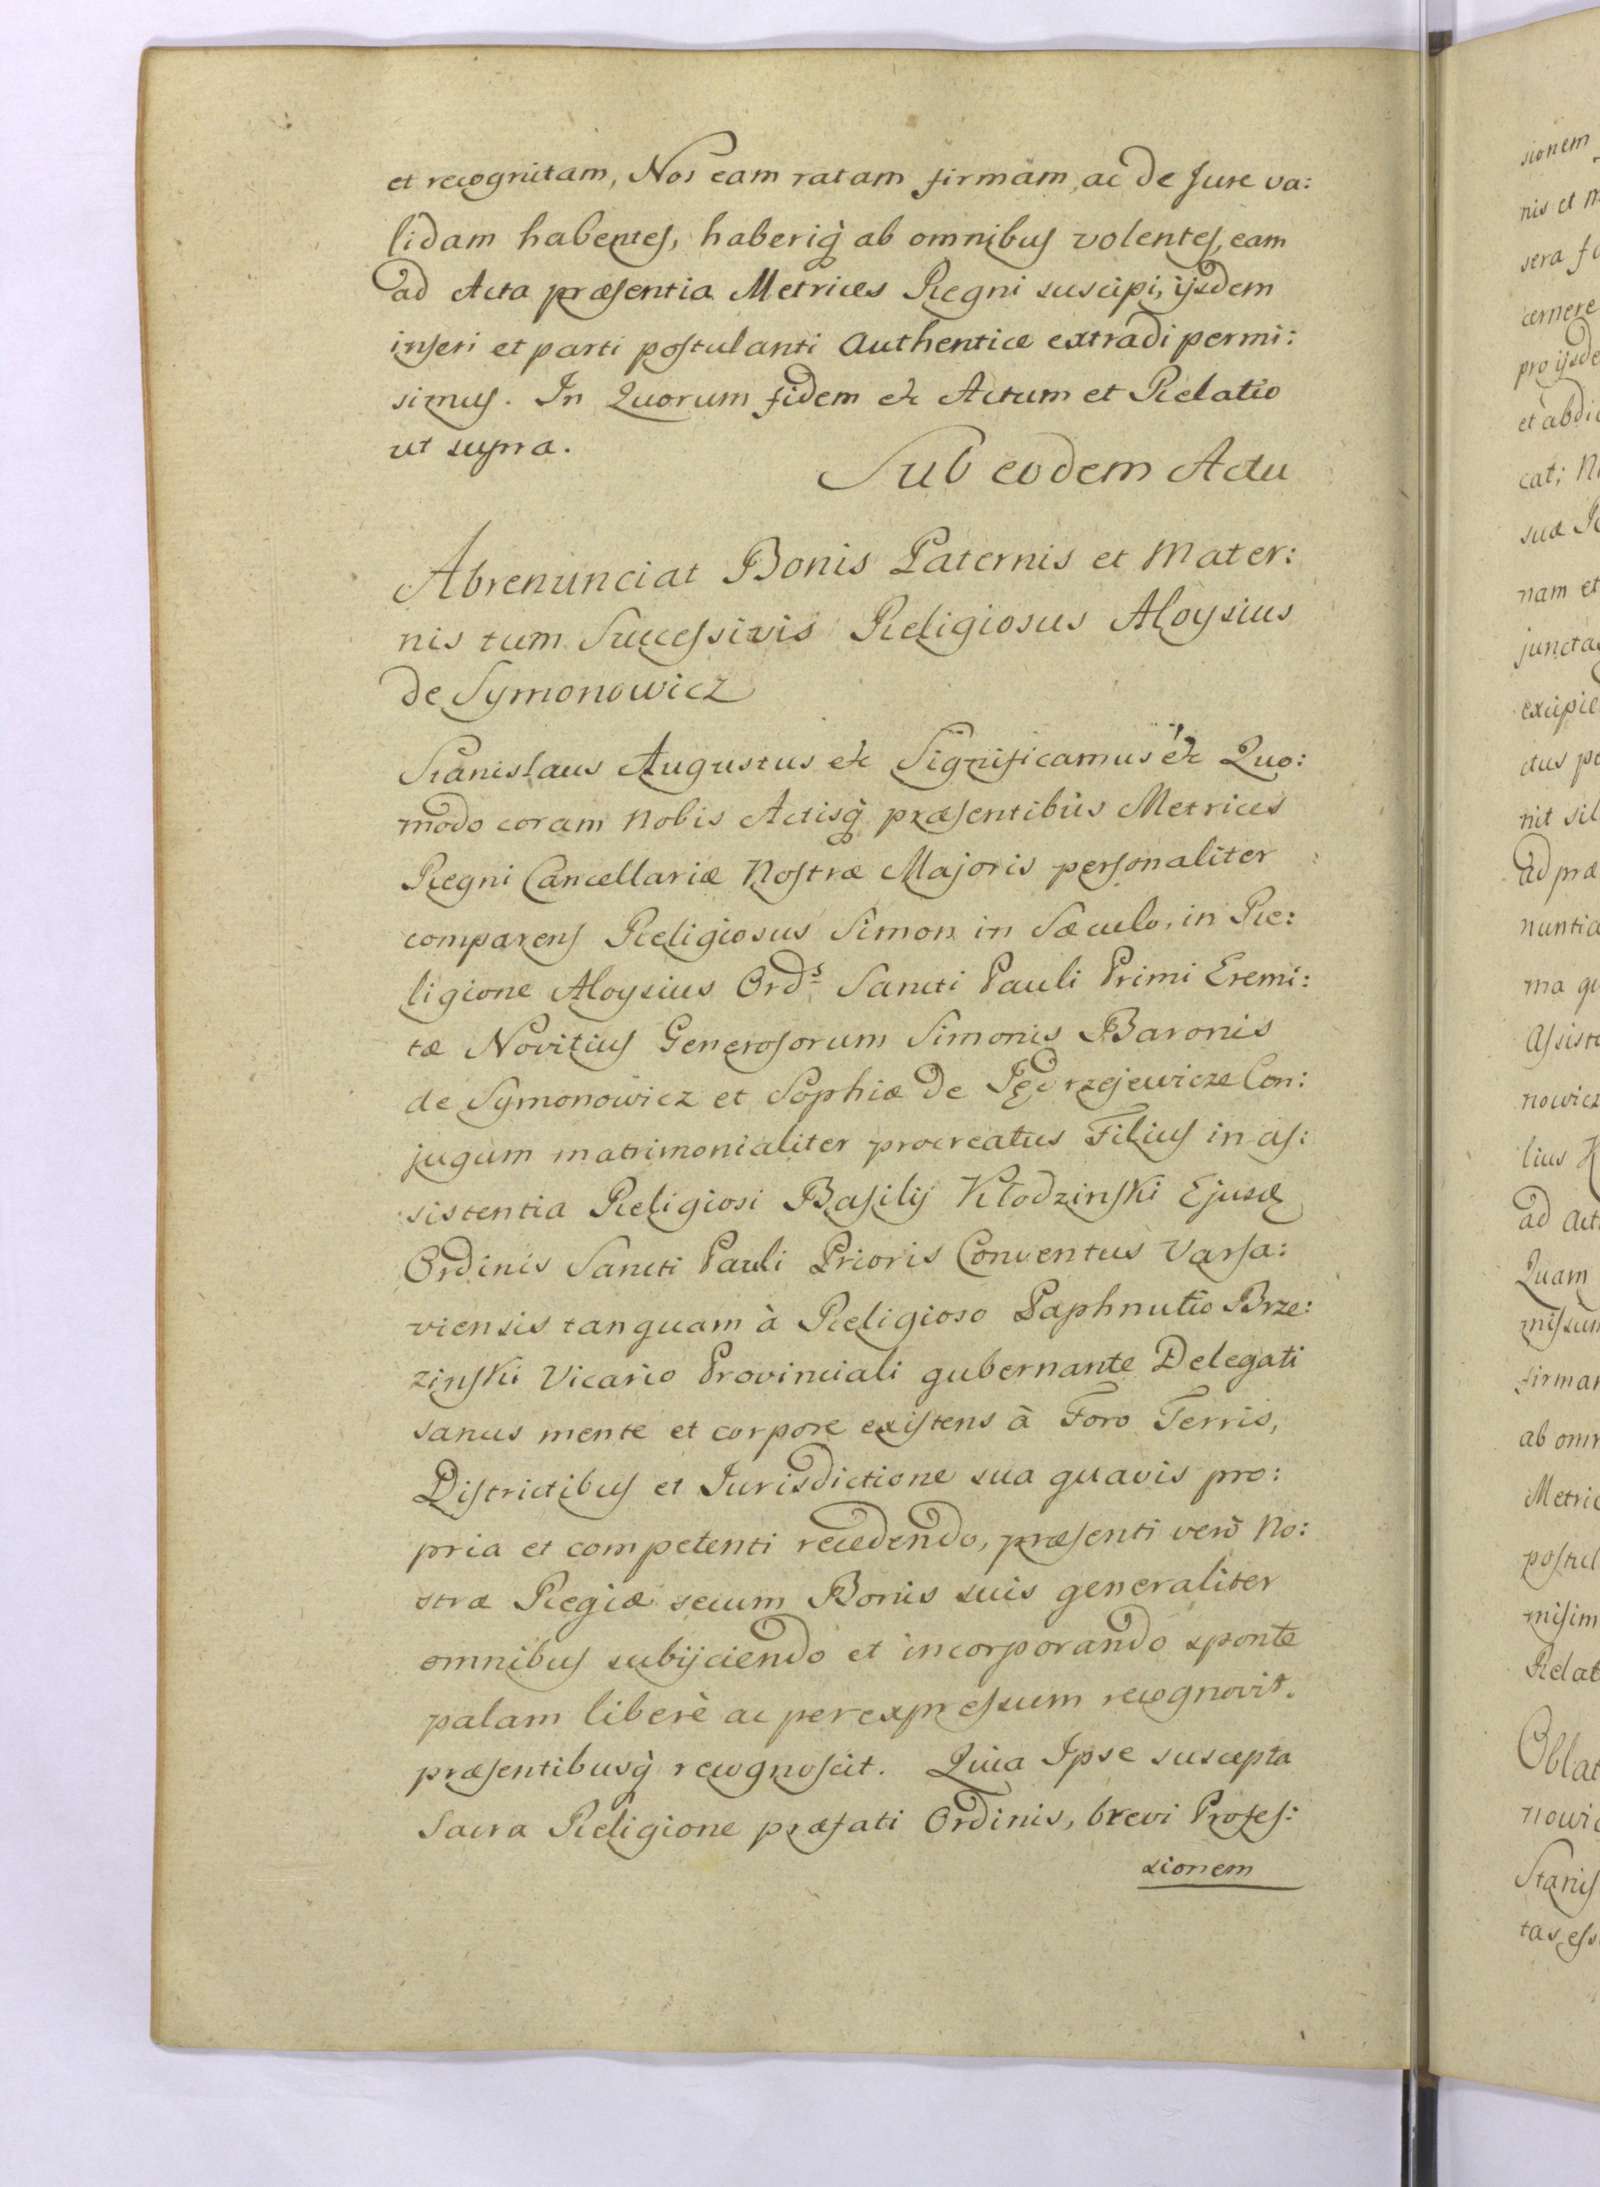 et recognitam, Nos eam ratam firmam, ac de Jure va:
lidam habentes, haberiq̀ ab omnibus volentes, eam
ad Acta præsentia Metrices Regni suscipi, ijsdem
inseri et parti postulanti Authentice extradi permi:
simus. In Quorum fidem etc Actum et Relatio
ut supra.
Sub eodem Actu
Abrenunciat Bonis Paternis et Mater:
nis tum Successivis Religiosus Aloysius
de Symonowicz
Stanislaus Augustus etc Significamus etc Quo:
modo coram Nobis Actisq̀ præsentibus Metrices
Regni Cancellariæ Nostræ Majoris personaliter
comparens Religiosus Simon in Sæculo, in Re:
ligione Aloysius Ordˢ Sancti Pauli Primi Eremi:
tæ Novitius Generosorum Simonis Baronis
de Symonowicz et Sophiæ de Jędrzejewicze Con:
jugum matrimonialiter procreatus Filius in as:
sistentia Religiosi Basilij Kłodzinski Ejusd
Ordinis Sancti Pauli Prioris Conventus Varsa:
viensis tanquam à Religioso Paphnutio Brze:
zinski Vicario Provinciali gubernante Delegati
sanus mente et corpore existens à Foro Terris,
Districtibus et Jurisdictione sua quavis pro:
pria et competenti recedendo, præsenti verò No:
stræ Regiæ secum Bonis suis generaliter
omnibus subijciendo et incorporando sponte
palam liberè ac per expressum recognovit.
præsentibusq̀ recognoscit. Quia Ipse suscepta
Sacra Religione præfati Ordinis, brevi Profes:
sionem